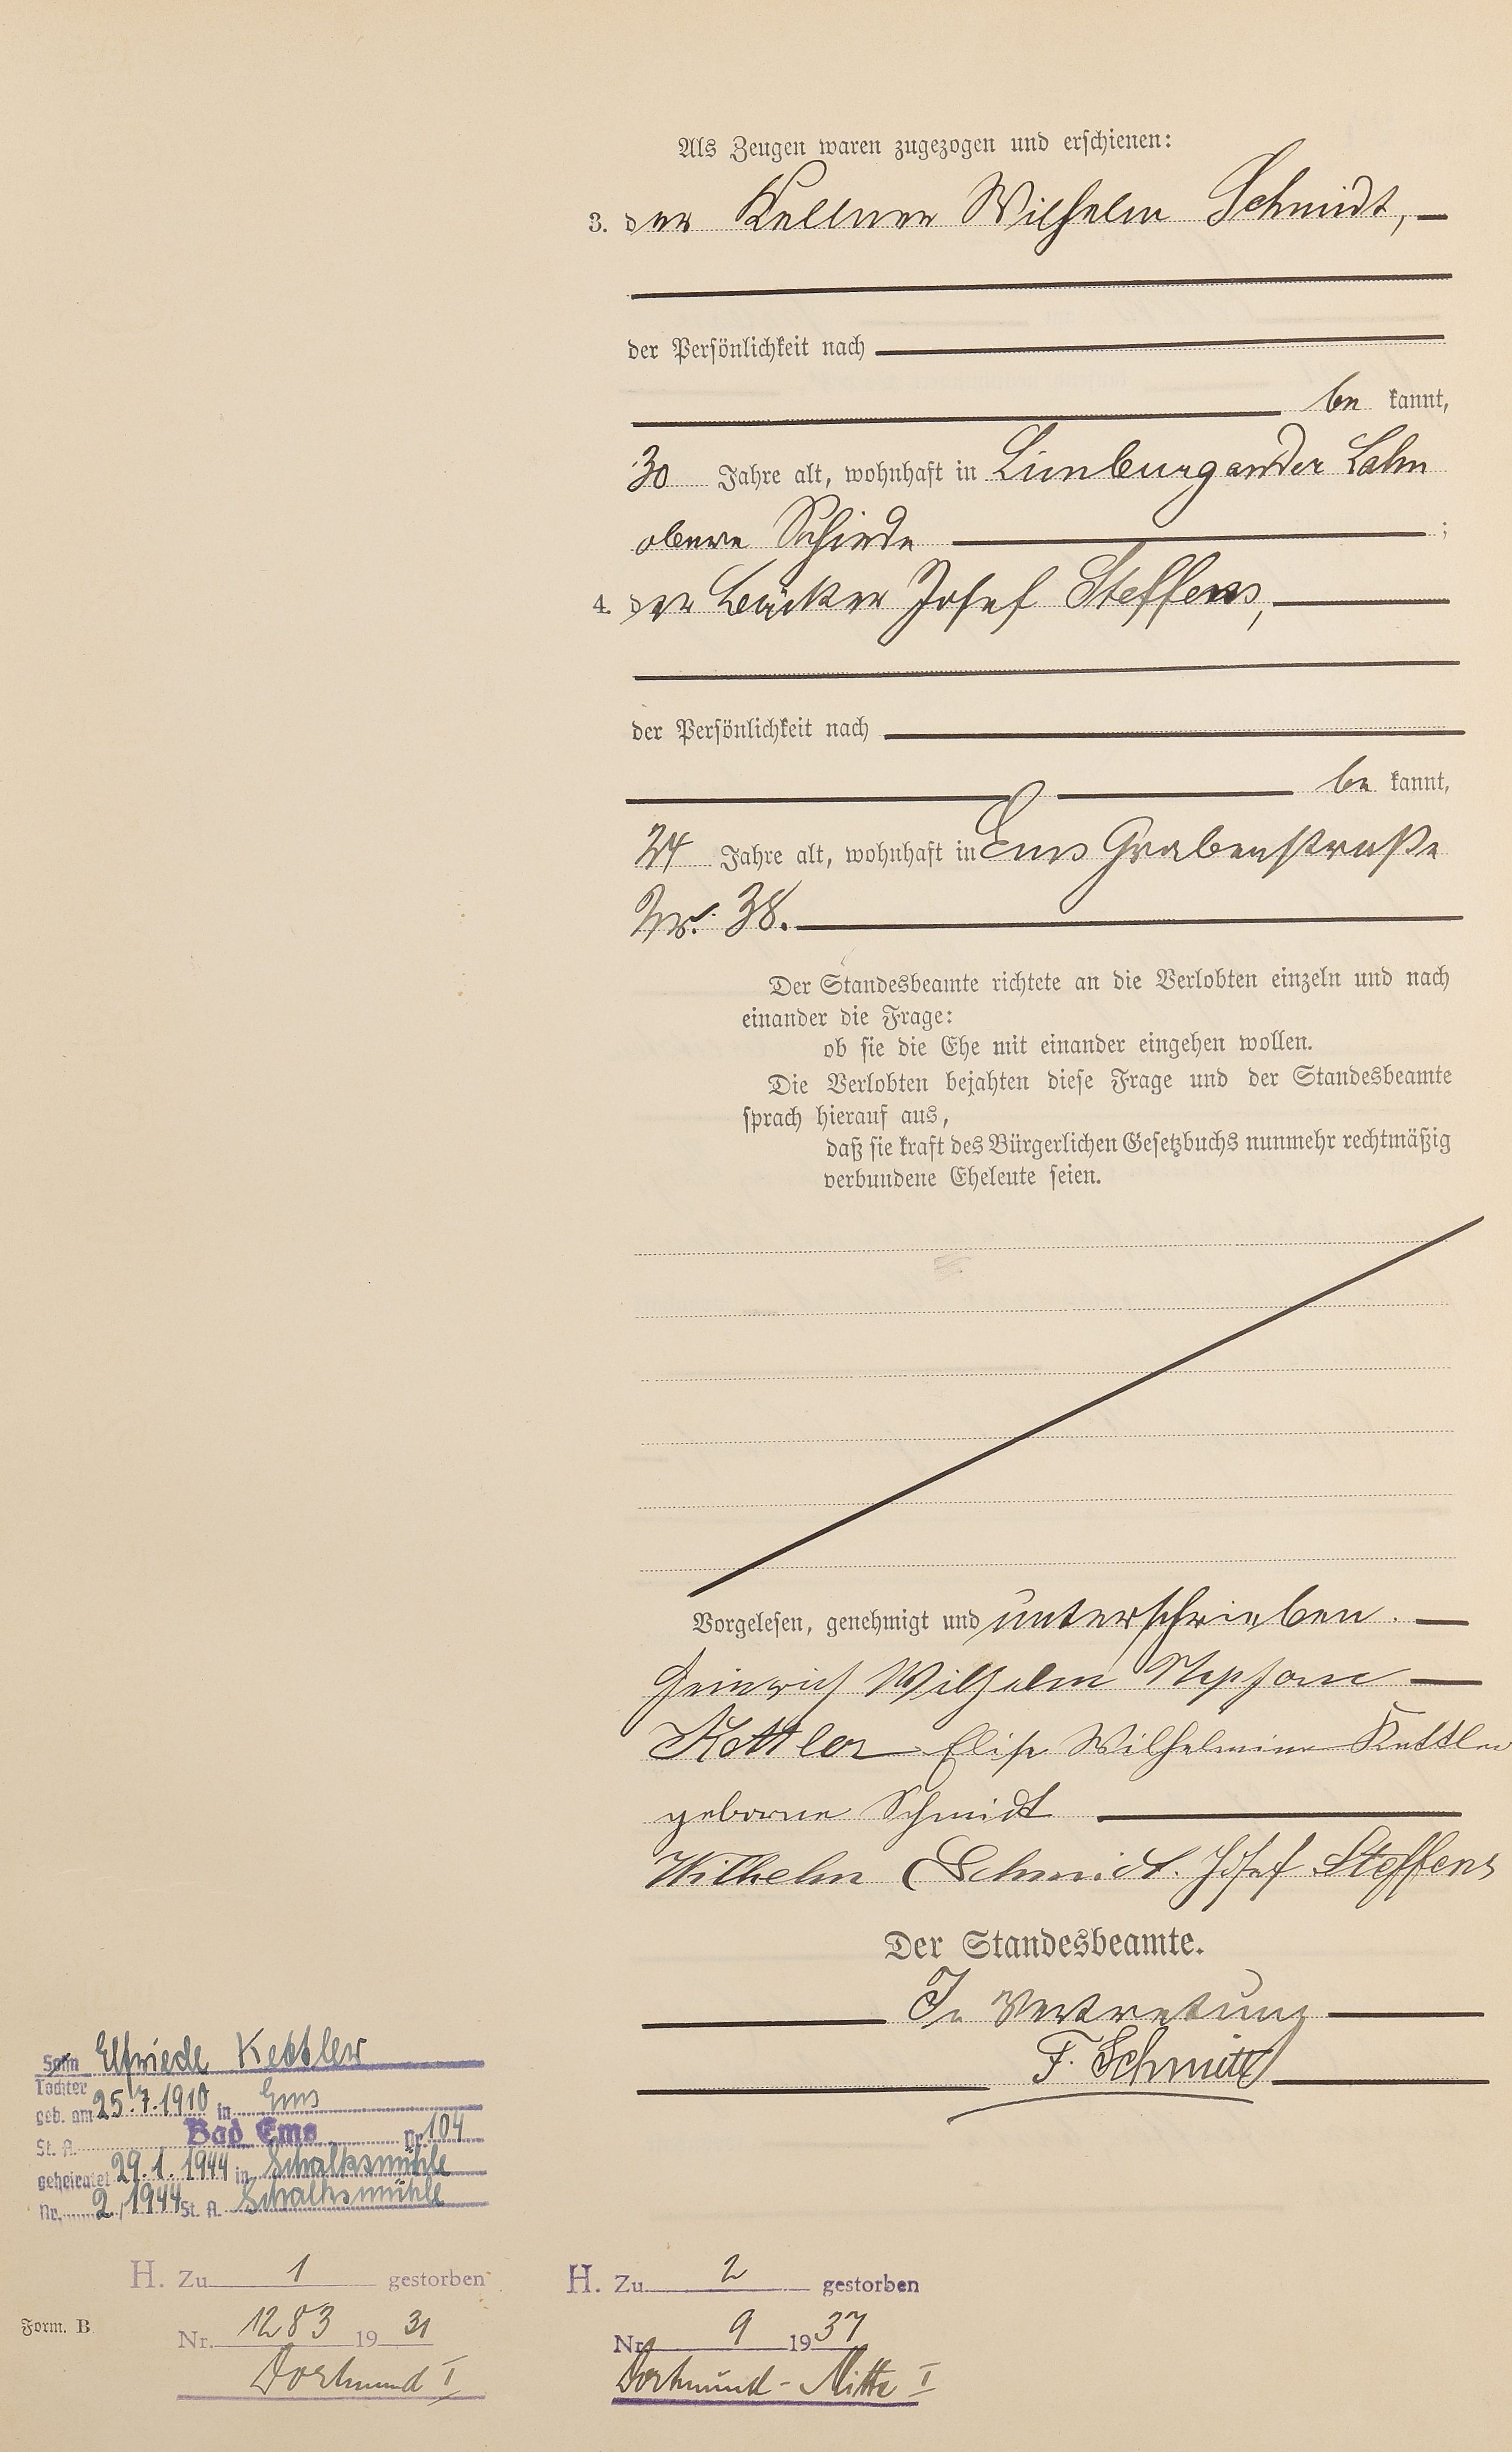 Als Zeugen waren zugezogen und erschienen:
3. der Kellner Wilhelm Schmidt,
der Persönlichkeit nach
be kannt,
30 Jahre alt, wohnhaft in Limburg an der Lahn
obere Schiede ;
4. der Bäcker Josef Steffens,
der Persönlichkeit nach
be kannt,
24 Jahre alt, wohnhaft in Ems Grabenstraße
Nr. 38.
Der Standesbeamte richtete an die Verlobten einzeln und nach
einander die Frage:
ob sie die Ehe mit einander eingehen wollen.
Die Verlobten bejahten diese Frage und der Standesbeamte
sprach hierauf aus,
daß sie kraft des Bürgerlichen Gesetzbuchs nunmehr rechtmäßig
verbundene Eheleute seien.
Vorgelesen, genehmigt und unterschrieben.
Heinrich Wilhelm Stephane
Kettler Elise Wilhelmine Kettler
geborne Schmidt
Wilhelm Schmidt. Josef Steffens
Der Standesbeamte.
In Vertretung
F. Schmitt
Sohn Elfriede Kettler
Tochter
geb. am 25.7.1910 in Ems
St. A. Bad Ems Nr. 104
geheiratet 29.1.1944 in Schalksmühle
Nr. 2/1944 St. A. Schalksmühle
H. Zu 1 gestorben
Nr. 1283 19 31
Dortmund I
H. Zu 2 gestorben
Nr. 9 19 37
Dortmund-Mitte I
Form. B.